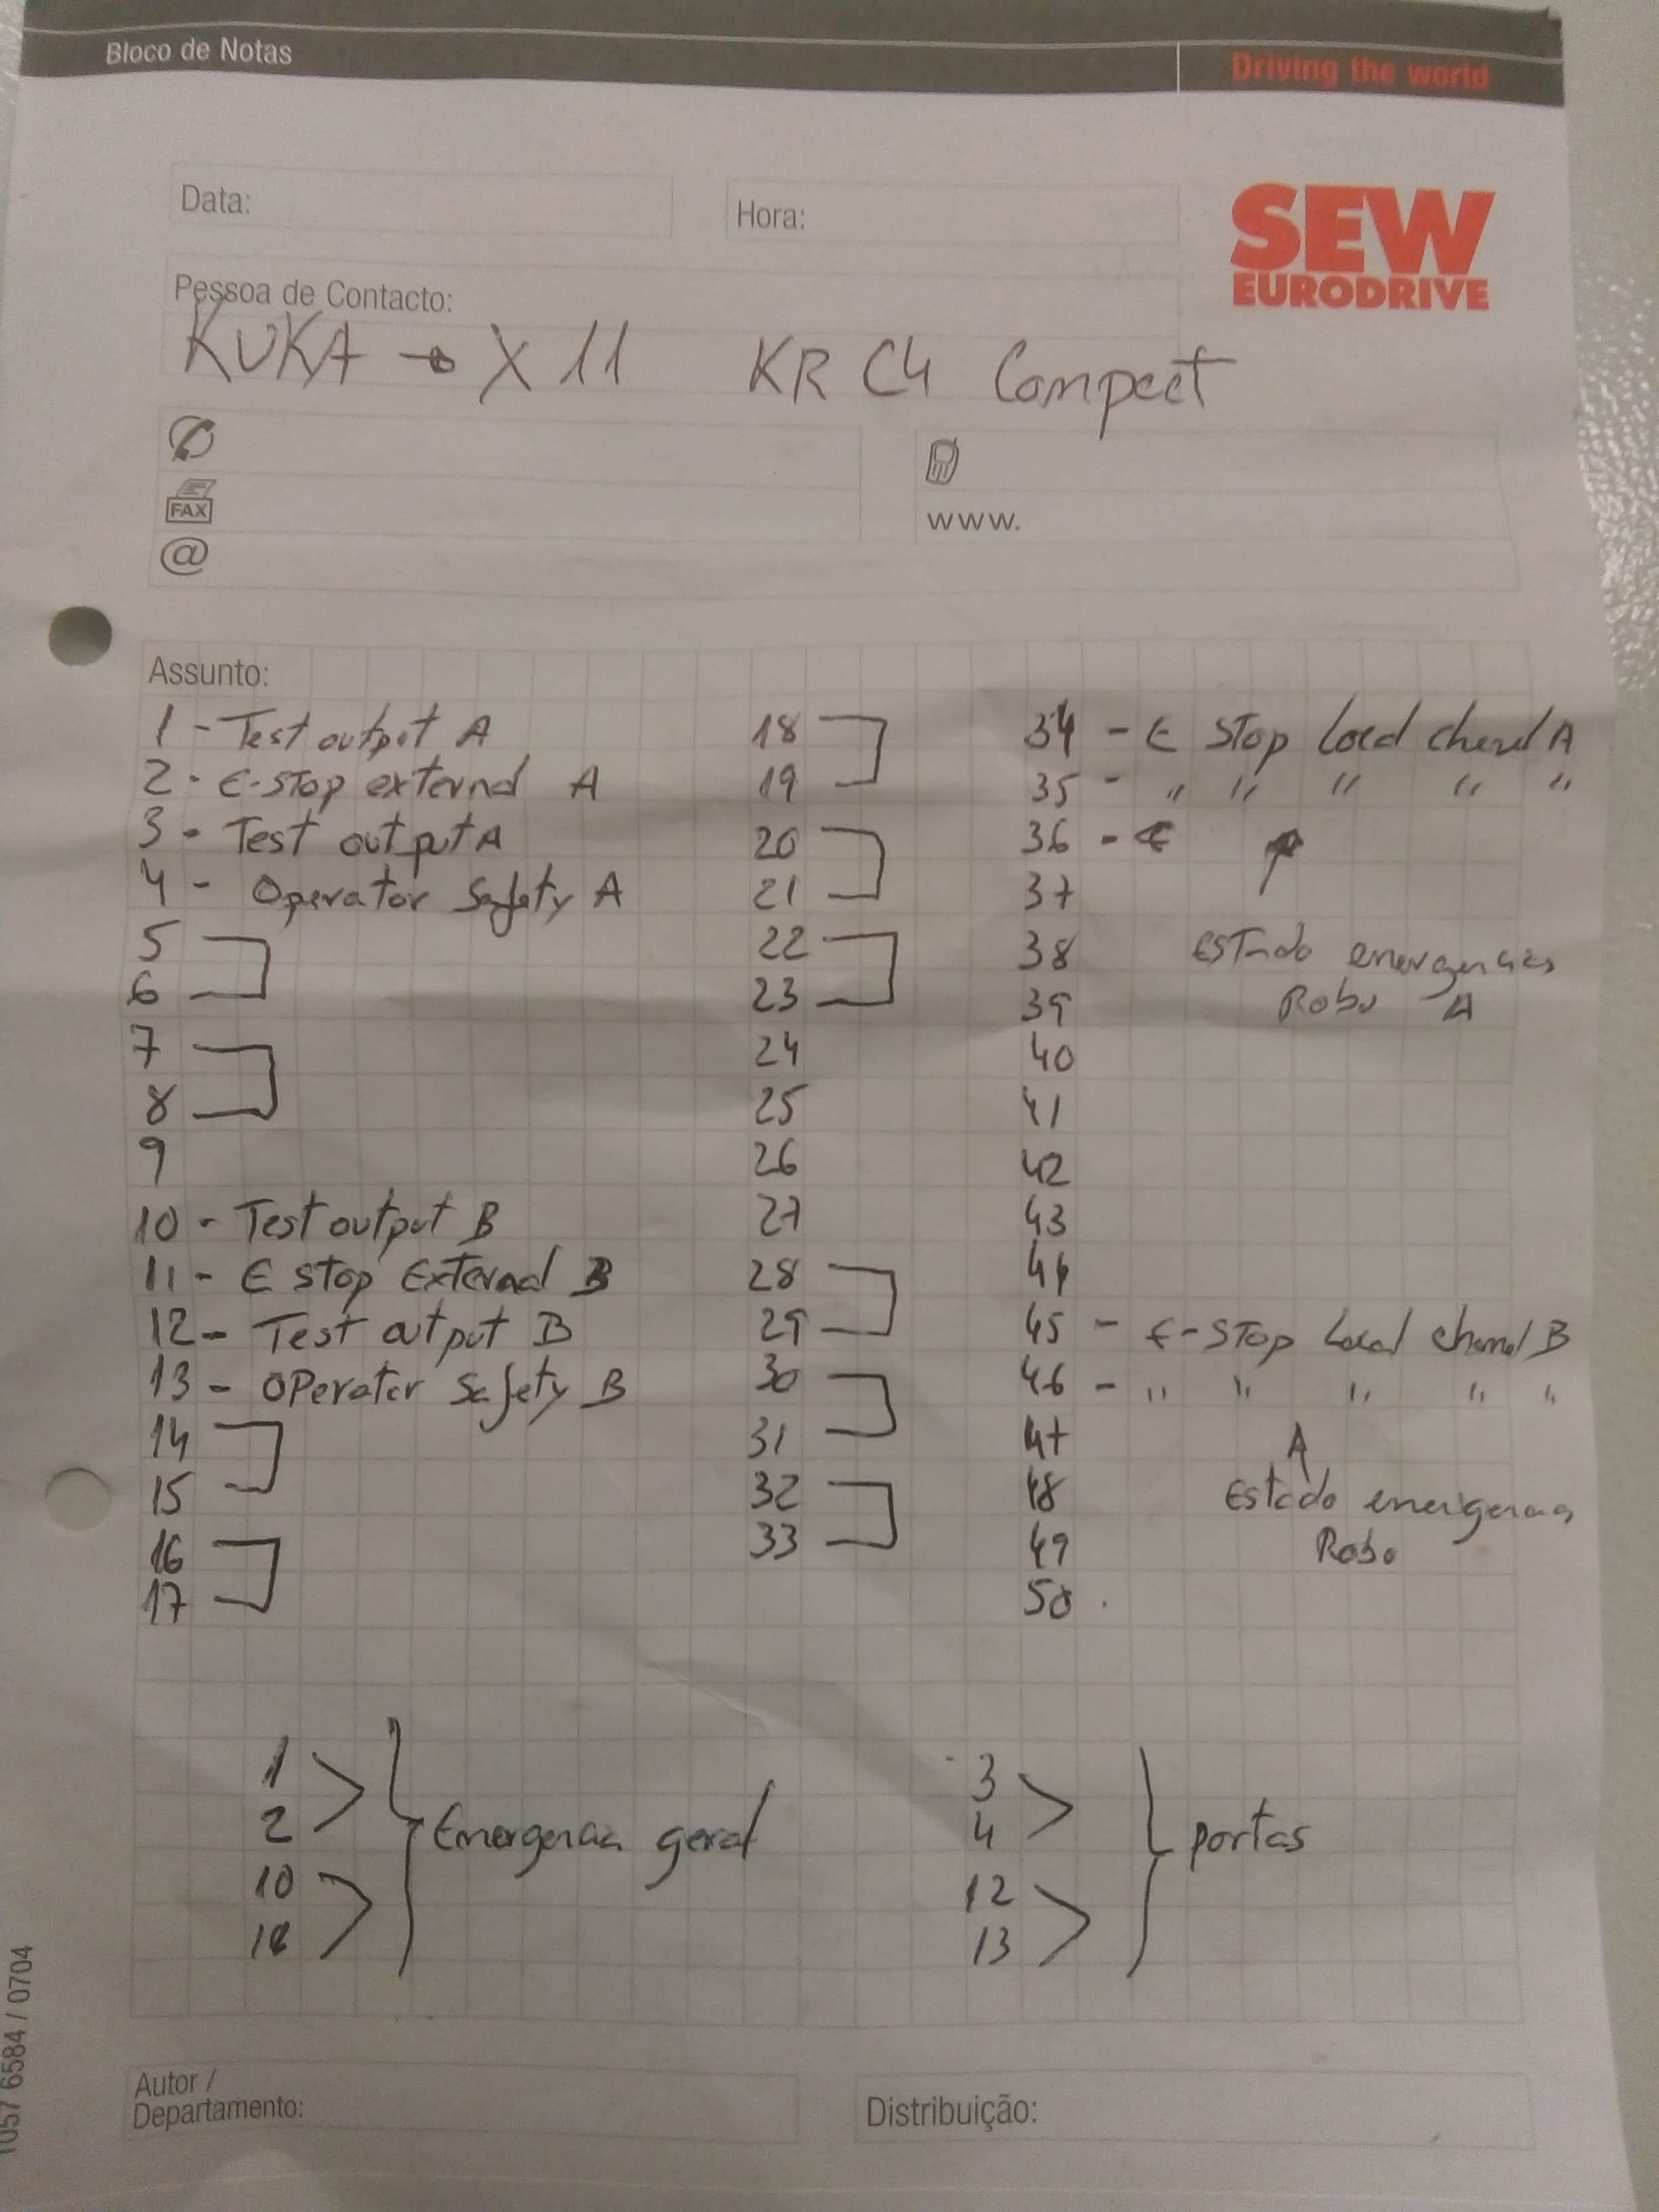 Bloco de Notas
Driving the world
Data:
Hora:
SEW
EURODRIVE
Pessoa de Contacto:
KUKA → X11 KR C4 Compact
FAX
www.
@
Assunto:
1 - Test output A
2 - E-stop external A
3 - Test output A
4 - Operator Safety A
5
6
7
8
9
10 - Test output B
11 - E stop External B
12 - Test output B
13 - Operator Safety B
14
15
16
17
18
19
20
21
22
23
24
25
26
27
28
29
30
31
32
33
34 - E Stop Local A
35 - " " " " "
36 -
37
38
39
Estado emergencia
Robo A
40
41
42
43
44
45 - E-Stop Local channel B
46 - " " " " "
47
48
49
50
Estado emergencia
Robo
1
2
10
Emergencia geral
3
4
12
13
portas
Autor /
Departamento:
Distribuição:
1057 6584 / 0704